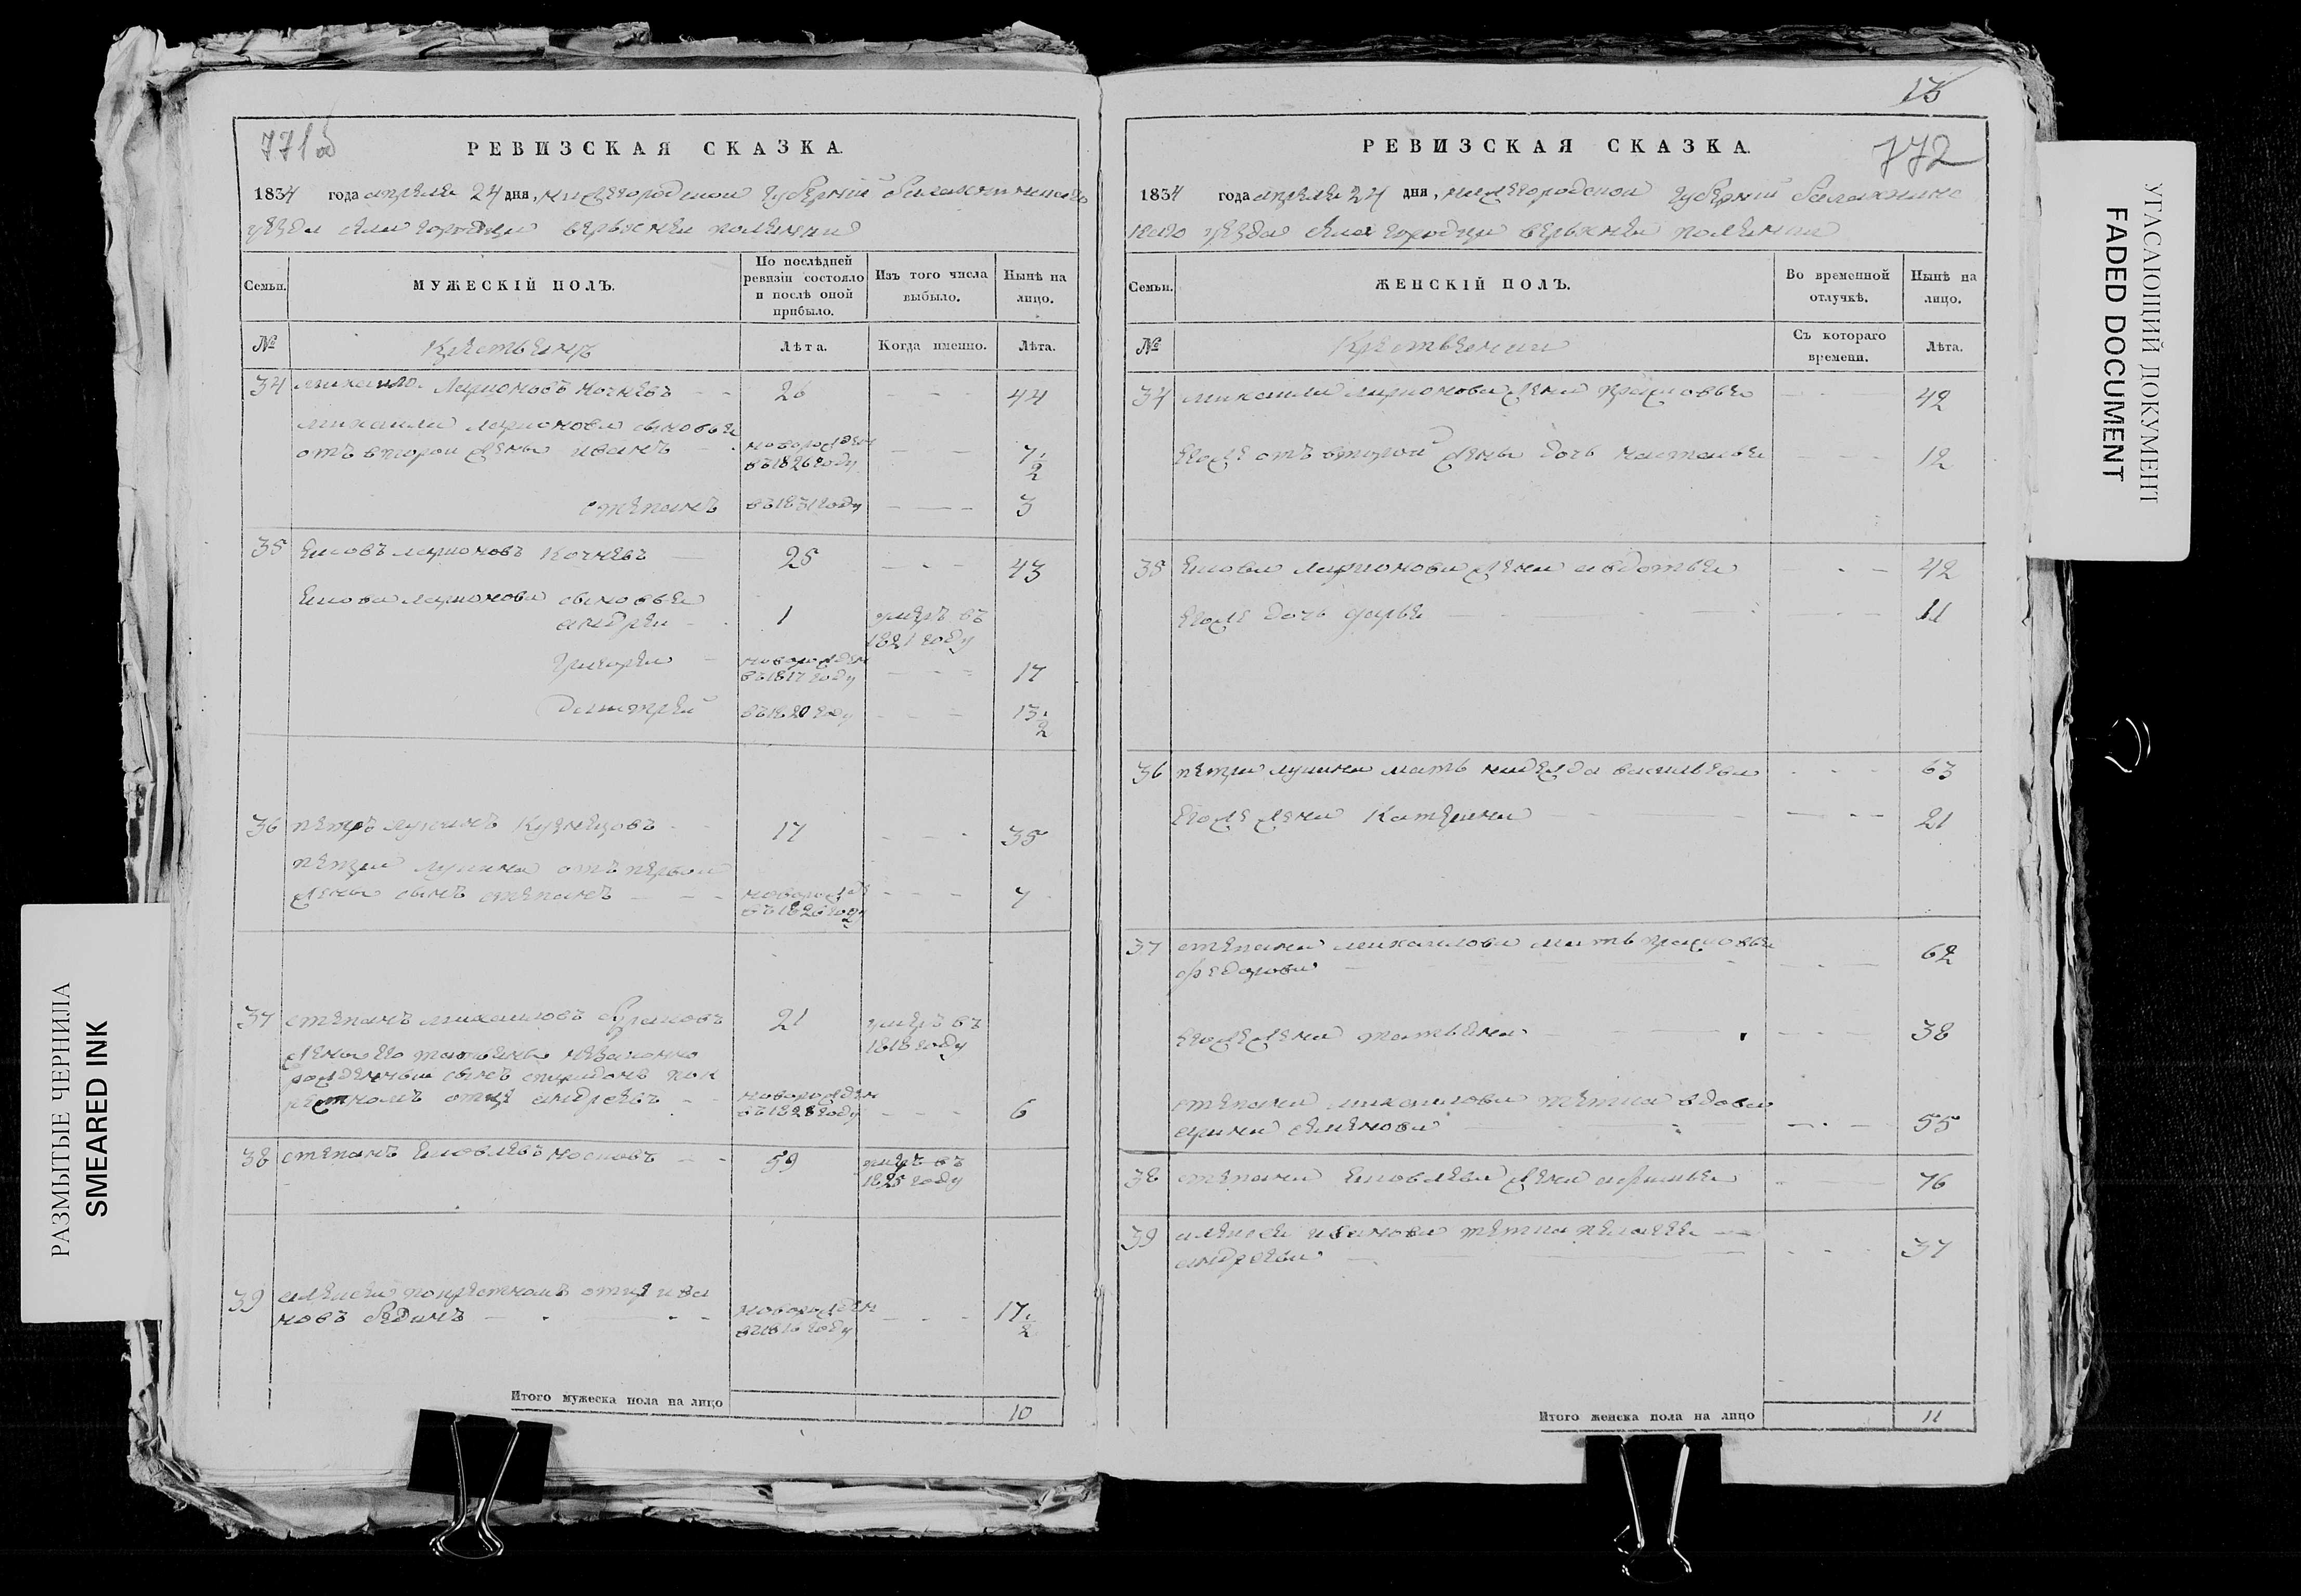 771 об
РЕВИЗСКАЯ СКАЗКА.
1834 года апреля 24 дня, нижегородской губернии балахнинскаго
уезда села городца верьхней полянки
Семьи.
МУЖЕСКІЙ ПОЛЪ.
По послѣдней ревизіи состояло и послѣ оной прибыло.
Изъ того числа выбыло.
Нынѣ на лицо.
№
Крестьянъ
Лѣта.
Когда именно.
Лѣта.
34 михаило Ларионовъ кочневъ 26 44
михаила ларионова сыновья
отъ второй жены иванъ новорожден въ 1826 году 7 1/2
степанъ въ 1831 году 3
35 Яковъ ларионовъ Кочневъ 25 43
Якова ларионова сыновья
андреи 1 умеръ въ 1821 году
григореи новорожден въ 1817 году 17
дмитрей въ 1820 году 13 1/2
36 петръ лукинъ Кузнецовъ 17 35
петра лукина отъ первой
жены сынъ степанъ новорожде въ 1826 году 7
37 степанъ михаиловъ 21 умеръ въ 1818 году
жены его татьяны незаконно
рожденный сынъ спиридонъ пок
рестному отцу андреевъ новорожден въ 1828 году 6
38 степанъ Яковлевъ носковъ 59 умеръ въ 1825 году
39 алексеи покрестному отцу ива
новъ новорожден въ 1816 году 17 1/2
Итого мужеска пола на лицо 10
13
772
РЕВИЗСКАЯ СКАЗКА.
1834 года апреля 24 дня, нижегородской губернии балахнинс
каго уезда села городца верьхней полянки
Семьи.
ЖЕНСКІЙ ПОЛЪ.
Во временной отлучкѣ.
Нынѣ на лицо.
№
Крестьянки
Съ котораго времени.
Лѣта.
34 михаила ларионова жена прасковья 42
егоже отъ второй жены дочь настасья 12
35 Якова ларионова жена авдотья 42
егоже дочь дарья 11
36 петра лукина мать надежда васильева 63
егоже жена Катерина 21
37 степана михаилова мать прасковья
федорова 62
егоже жена татьяна 38
степана михаилова тетка вдова
арина семенова 55
38 степана Яковлева жена 76
39 алексея иванова тетка пелагея
андреева 37
Итого женска пола на лицо 11
УГАСАЮЩИЙ ДОКУМЕНТ
FADED DOCUMENT
РАЗМЫТЫЕ ЧЕРНИЛА
SMEARED INK